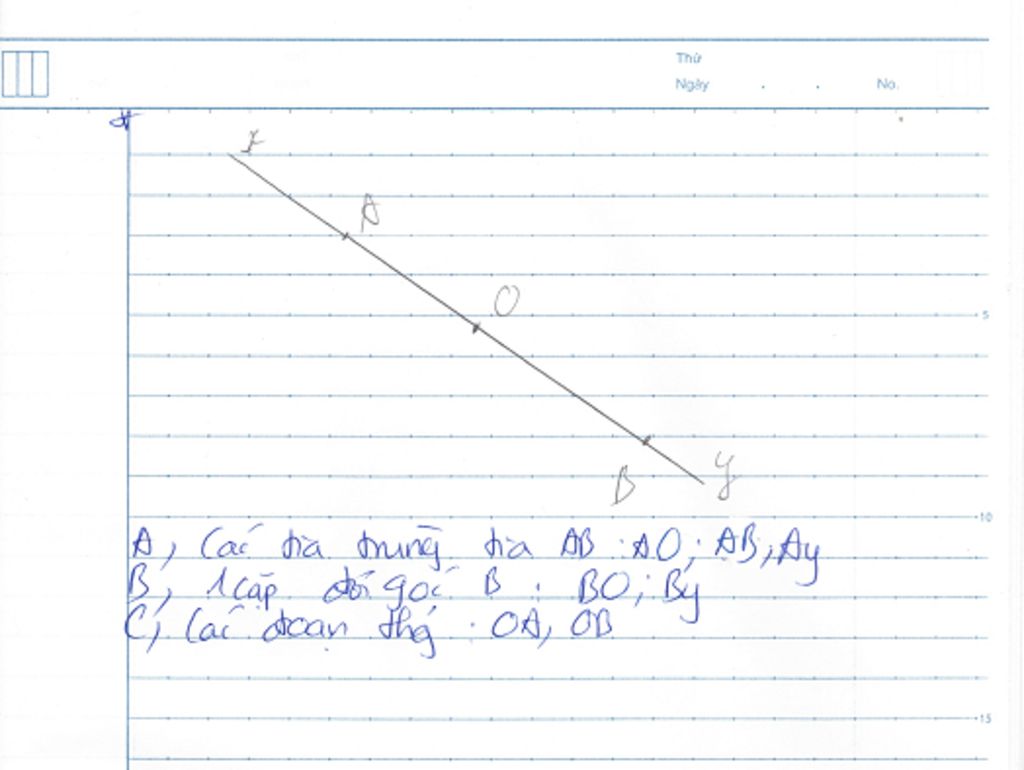 Thứ
Ngày . . No.
x
A
O
5
B y
10
A, Các tia trùng tia AB : AO ; AB, Ay
B, 1 cặp đối gốc B : BO ; By
C, Các đoạn thg : OA, OB
15